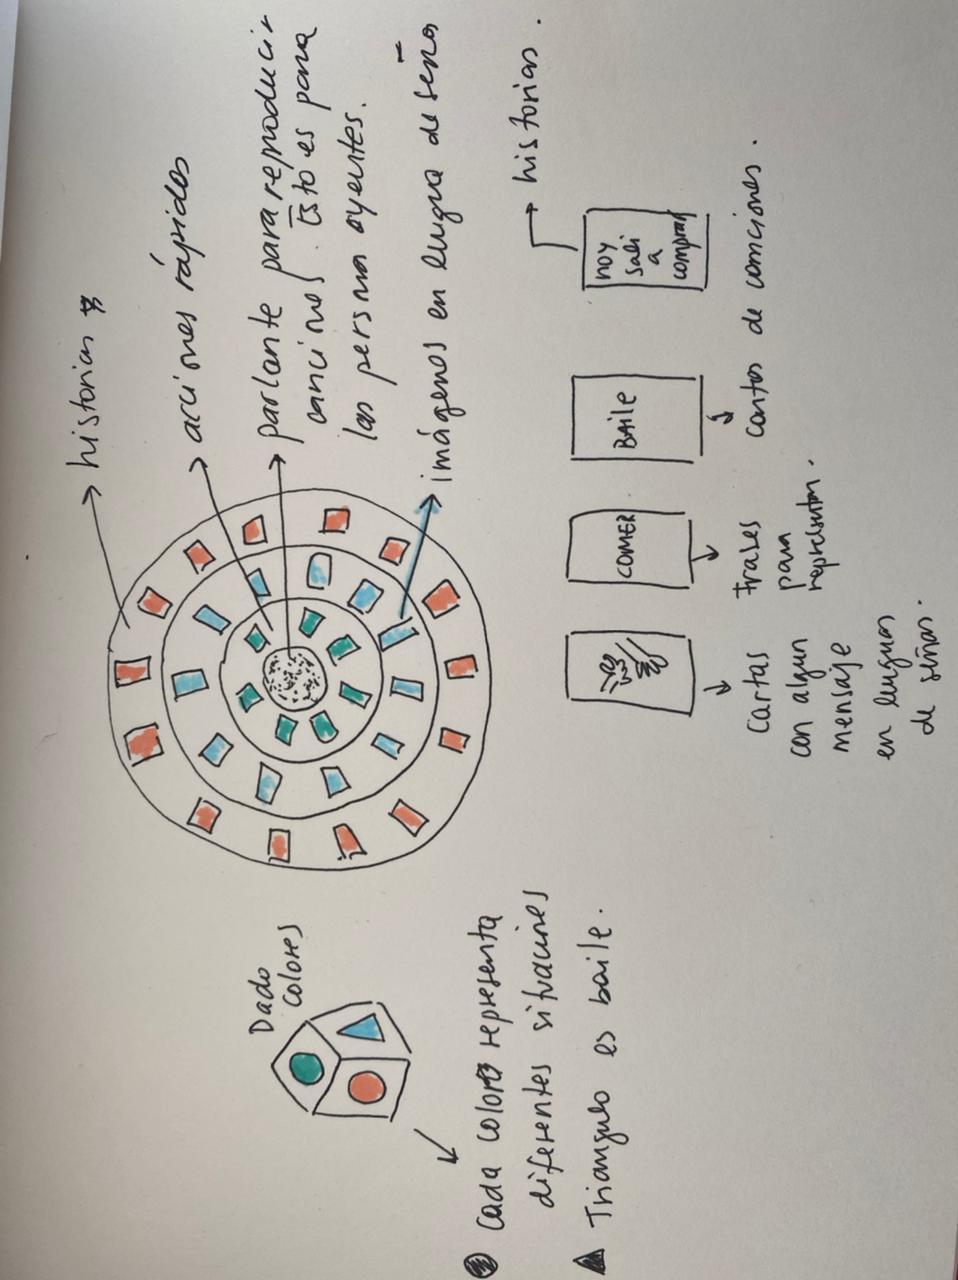 Dado
colores
Cada color representa
diferentes situaciones
Triangulo es baile.
historias
acciones rápidas
parlante para reproducir
canciones. Esto es para
las persona oyentes.
imágenes en lengua de seña
historias.
hoy
sali
a
comprar
BAILE
cartas de canciones.
COMER
frases
para
representar.
cartas
con algun
mensaje
en lenguas
de señas.